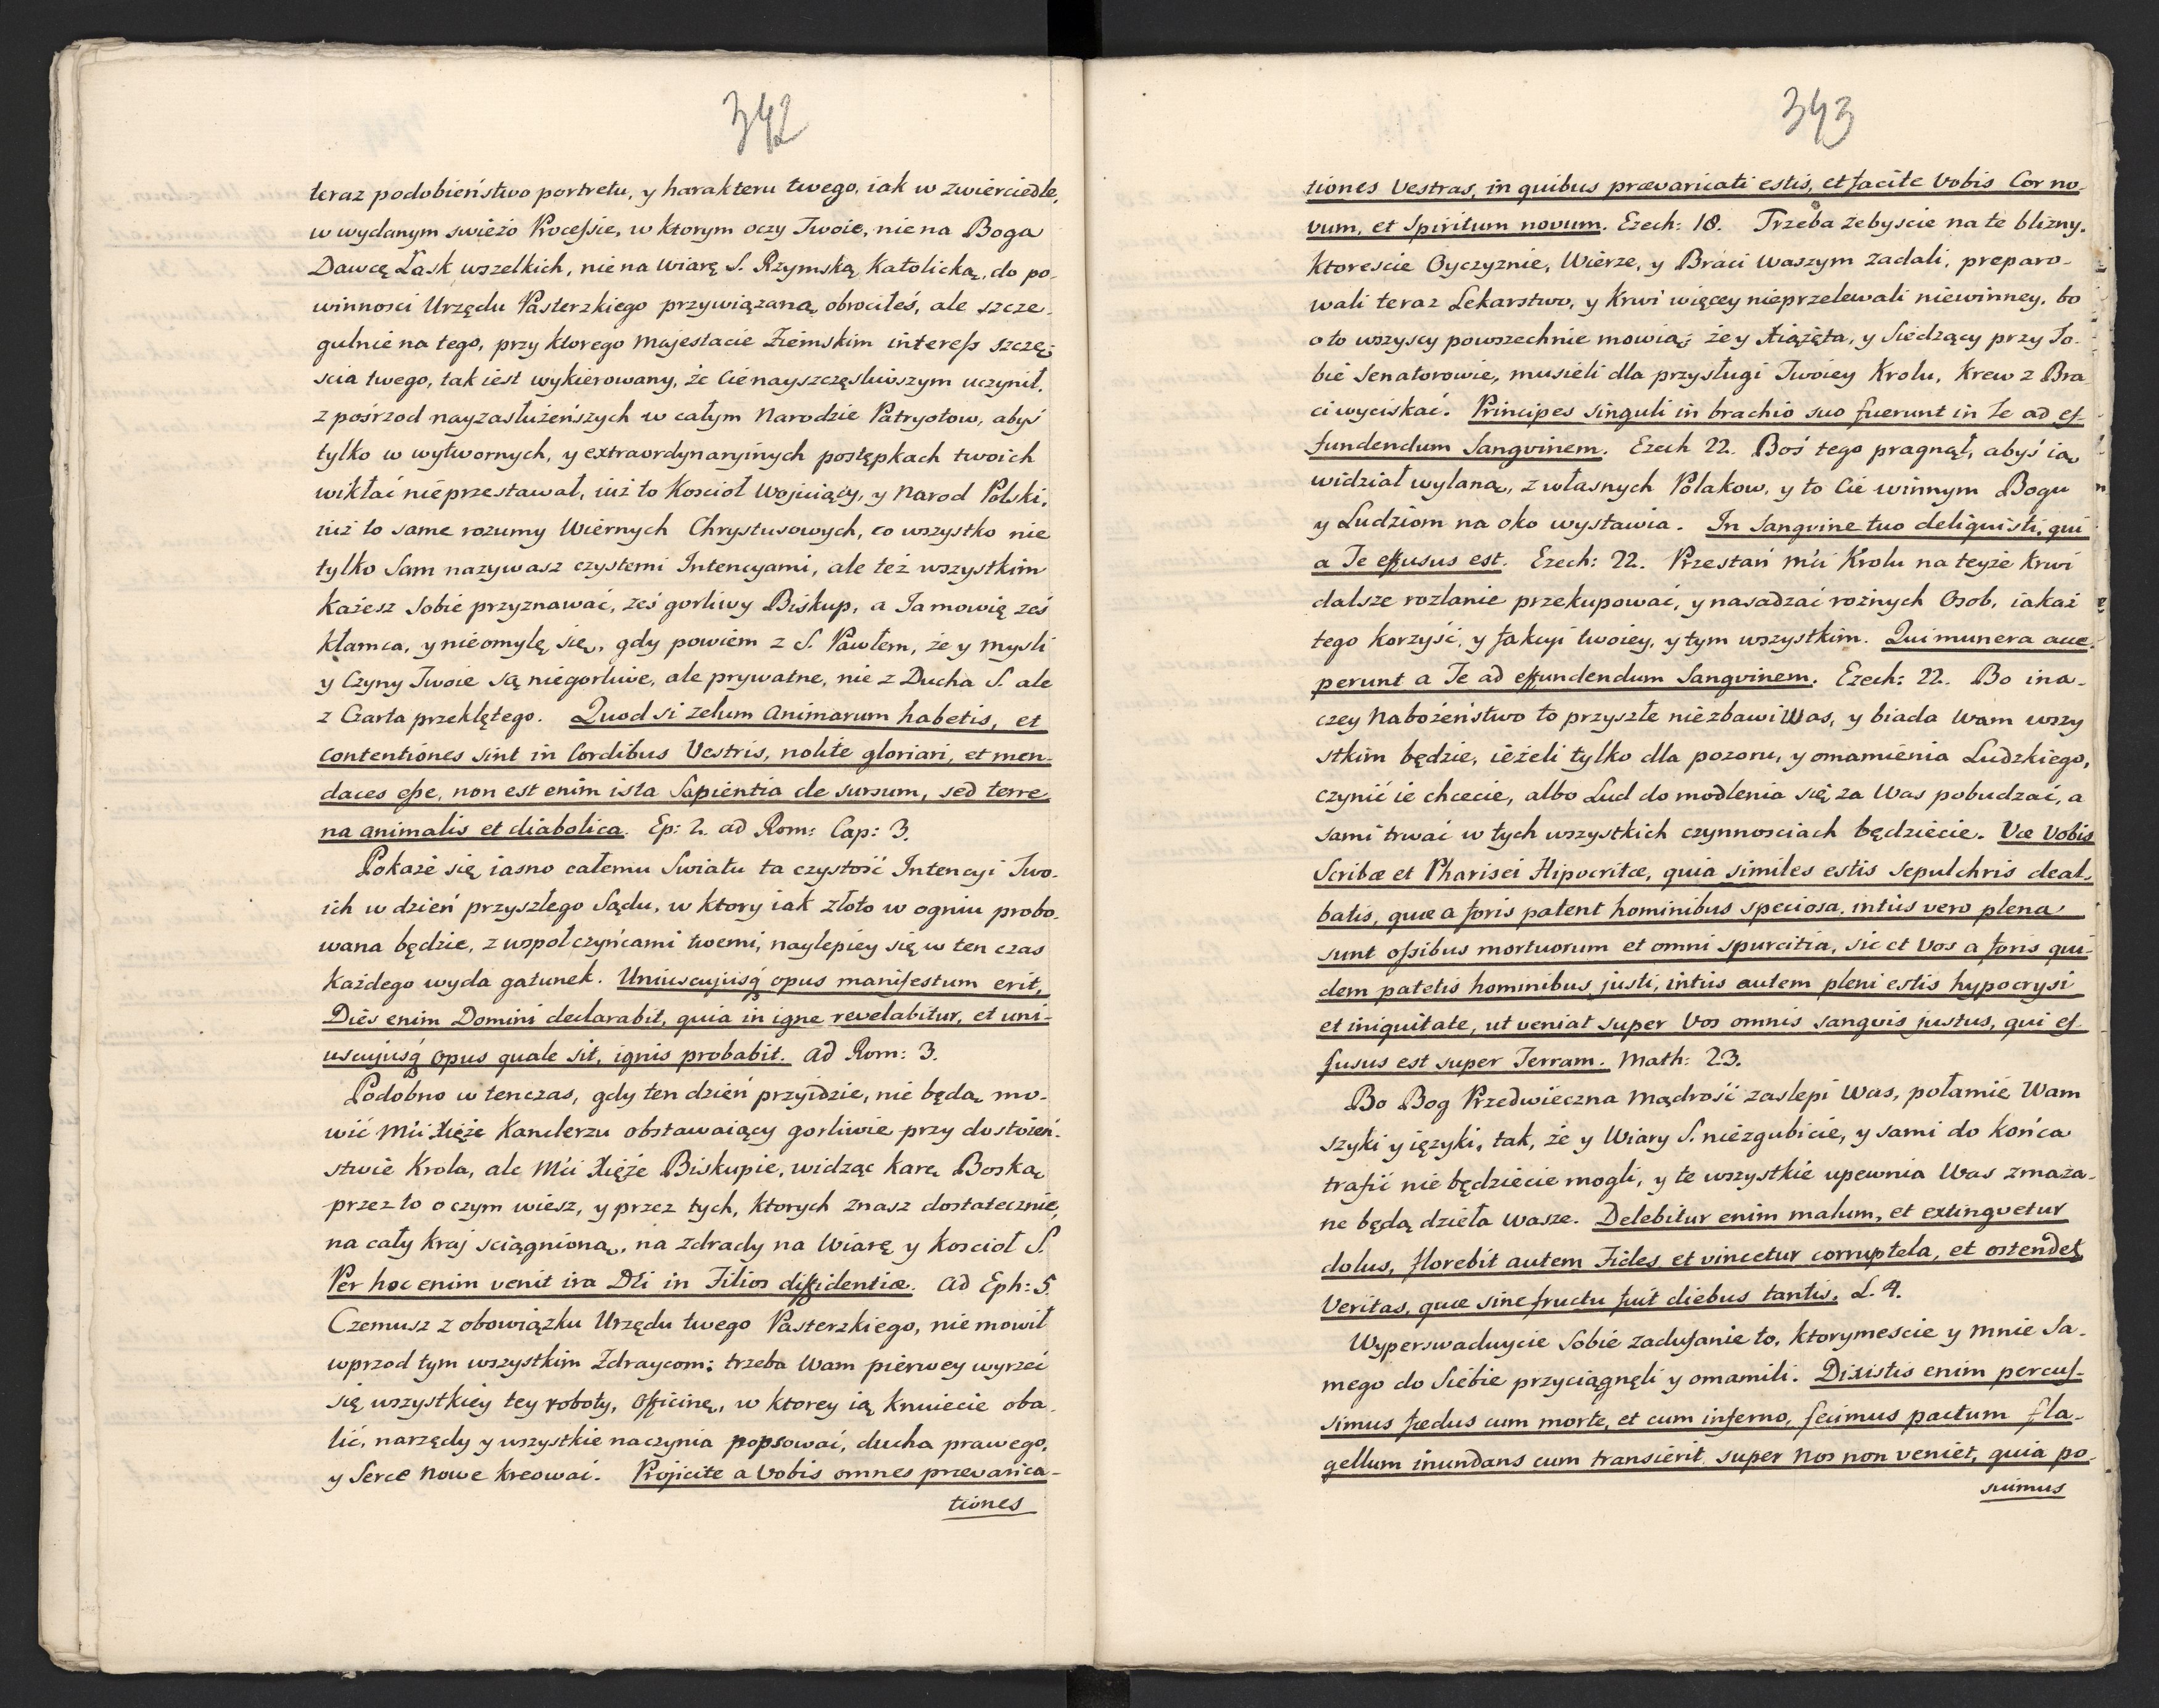 342
teraz podobieństwo portretu, y harakteru twego, iak w zwierciedle,
w wydanym swieżo Processie, w ktorym oczy Twoie, nie na Boga
Dawcę Łask wszelkich, nie na Wiarę S. Rzymską Katolicką, do po-
winnosci Urzędu Pasterzkiego przywiązaną obrociłeś, ale szcze-
gulnie na tego, przy ktorego Majestacie Ziemskim interess szczę-
scia twego, tak iest wykierowany, że Cie nayszczęsliwszym uczynił,
z posrzod nayzasłużeńszych w całym Narodzie Patryotow, abyś
tylko w wytwornych, y extraordynaryinych postępkach twoich
wikłać nie przestawał, iuż to Kosciół Wojuiący, y Narod Polski,
iuż to same rozumy Wiernych Chrystusowych, co wszystko nie
tylko Sam nazywasz czystemi Intencyami, ale też wszystkim
każesz sobie przyznawać, żeś gorliwy Biskup, a Ja mowię żeś
kłamca, y nieomylę się, gdy powiem z S. Pawłem, że y mysli
y Czyny Twoie są niegorliwe, ale prywatne, nie z Ducha S. ale
z Czarta przeklętego. Quod si zelum animarum habetis, et
contentiones sint in Cordibus Vestris, nolite gloriari, et men-
daces esse, non est enim ista Sapientia de sursum, sed terre
na animalis et diabolica. Ep: 2. ad Rom: Cap: 3.
Pokaże się iasno całemu Swiatu ta czystość Intencyi Two-
ich w dzień przyszłego Sądu, w ktory iak złoto w ogniu probo-
wana będzie, z wspołczyńcami twemi, naylepiey się w ten czas
każdego wyda gatunek. Uniuscujusq opus manifestum erit,
Dies enim Domini declarabit, quia in igne revelabitur, et uni-
uscujusq opus quale sit, ignis probabit. ad Rom: 3.
Podobno w tenczas, gdy ten dzień przyidzie, nie będą mo-
wić Mći Xięże Kanclerzu obstawaiący gorliwie przy dostoień-
stwie Krola, ale Mći Xięże Biskupie, widząc karę Boską
przez to o czym wiesz, y przez tych, ktorych znasz dostatecznie,
na cały kraj sciągnioną, na zdrady na Wiarę y Kosciół S.
Per hoc enim venit ira Dei in Filios diffidentiæ. Ad Eph: 5.
Czemusz z obowiązku Urzędu twego Pasterzkiego, nie mowił
wprzod tym wszystkim Zdraycom: trzeba Wam pierwey wyrzec
się wszystkiey tey roboty, Officinę, w ktorey ią knuiecie oba-
lić, narzędy y wszystkie naczynia popsować, ducha prawego,
y Serce nowe kreować. Projicite a Vobis omnes prævarica-
tiones
343
tiones Vestras, in quibus prævaricati estis, et facite Vobis Cor no-
vum, et Spiritum novum. Ezech: 18. Trzeba żebyscie na te blizny,
ktorescie Oyczyznie, Wierze, y Braci Waszym zadali, preparo-
wali teraz Lekarstwo, y Krwi więcey nieprzelewali niewinney, bo
oto wszyscy powszechnie mowią: że y Xiążęta, y Siedzący przy To-
bie Senatorowie, musieli dla przysługi Twoiey Krolu, Krew z Bra
ci wyciskać. Principes singuli in brachio suo fuerunt in Te ad ef-
fundendum Sangvinem. Ezech 22. Boś tego pragnął, abyś ią
widział wylaną, z własnych Polakow, y to Cie winnym Bogu
y Ludziom na oko wystawia. In Sangvine tuo deliquisti, qui
a Te effusus est. Ezech: 22. Przestań Mći Krolu na teyże krwi
dalsze rozlanie przekupować, y nasadzać rożnych Osob, iakaż
tego korzyść, y fakcyi twoiey, y tym wszystkim. Qui munera acce-
perunt a Te ad effundendum Sangvinem. Ezech: 22. Bo ina-
czey Nabożeństwo to przyszłe niezbawi Was, y biada Wam wszy
stkim będzie, ieżeli tylko dla pozoru, y omamienia Ludzkiego,
czynić ie chcecie, albo Lud do modlenia się za Was pobudzać, a
sami trwać w tych wszystkich czynnosciach będziecie. Væ Vobis
Scribæ et Pharisei Hipocritæ, quia similes estis Sepulchris deal-
batis, quæ a foris patent hominibus speciosa, intùs vero plena
sunt ossibus mortuorum et omni spurcitia, sic et Vos a foris qui-
dem patetis hominibus justi, intùs autem pleni estis hypocrysi
et iniquitate, ut veniat super Vos omnis sangvis justus, qui ef-
fusus est super Terram. Math: 23.
Bo Bog Przedwieczna Mądrość zaslepi Was, połamie Wam
szyki y ięzyki, tak, że y Wiary S. niezgubicie, y sami do końca
trafić nie będziecie mogli, y te wszystkie upewnia Was zmaza-
ne będą dzieła wasze. Delebitur enim malum, et extingvetur
dolus, florebit autem Fides et vincetur corruptela, et ostendet
Veritas, quæ sine fructu fuit diebus tantis. L. 4.
Wyperswaduycie Sobie zadufanie to, ktorymescie y mnie Sa-
mego do Siebie przyciągnęli y omamili. Dixistis enim percus-
simus fœdus cum morte, et cum inferno, fecimus pactum fla-
gellum inundans cum transierit super Nos non veniet, quia po-
suimus